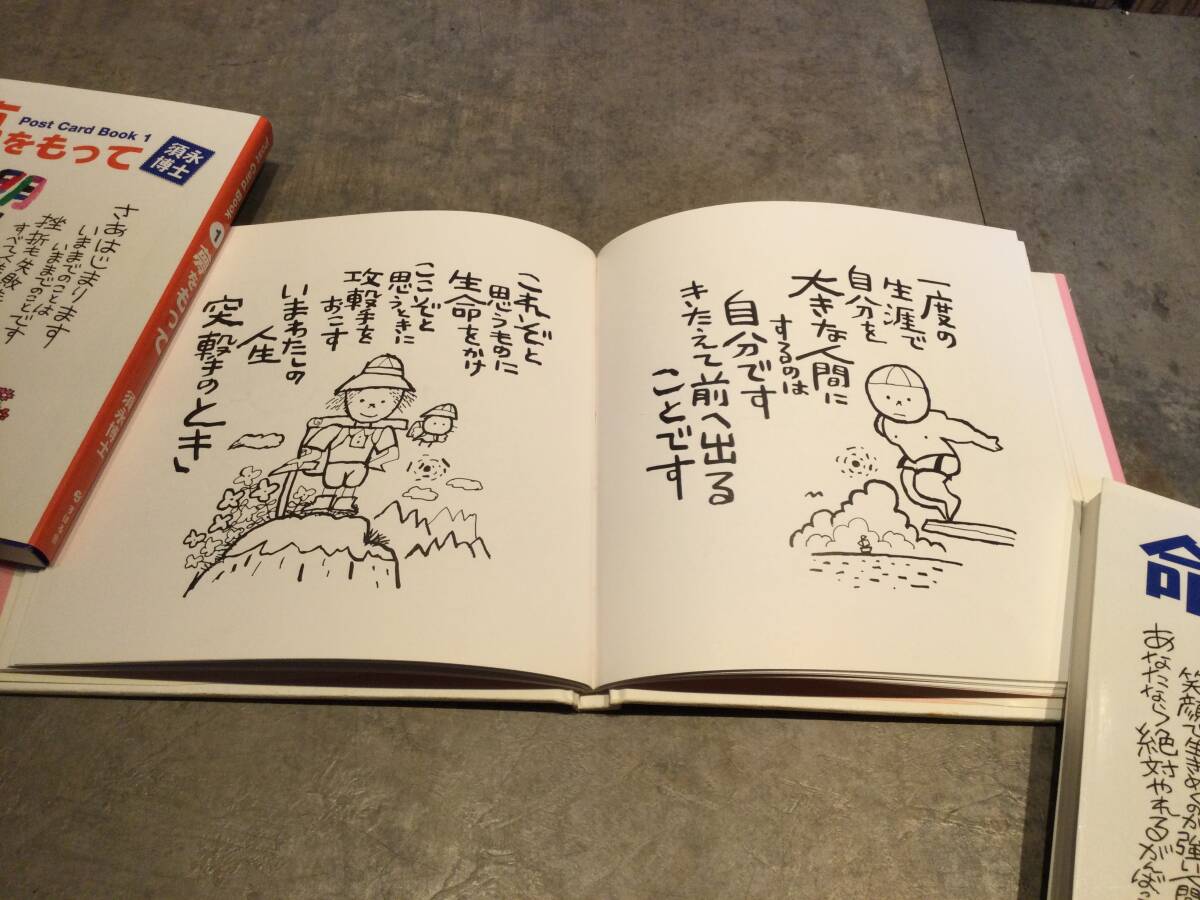 Post Card Book 1
をもって
須永
博士
さあはじまります
いままでのことは
いままでのことです
挫折も失敗も
すべて
Post Card Book
1
をもって
須永博士
これぞと
思うものに
生命をかけ
ここぞと
思えときに
攻撃を
おこす
いまわたしの
人生
突撃のとき
一度の
生涯で
自分を
大きな人間に
するのは
自分です
きたえて前へ出る
ことです
命
笑顔で生きぬくのが強い人間
あなたなら絶対やれるがんばっ